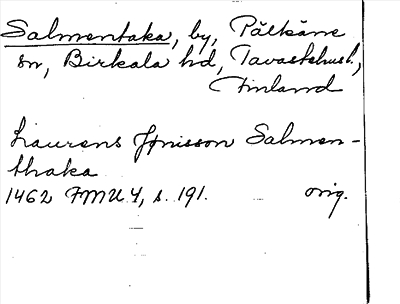 Salmentaka, by, Pälkäne
sn, Birkala hd, Tavastehusl.,
Finland
Laurens Jönisson Salmen-
thaka
1462 FMU 4, s. 191. orig.